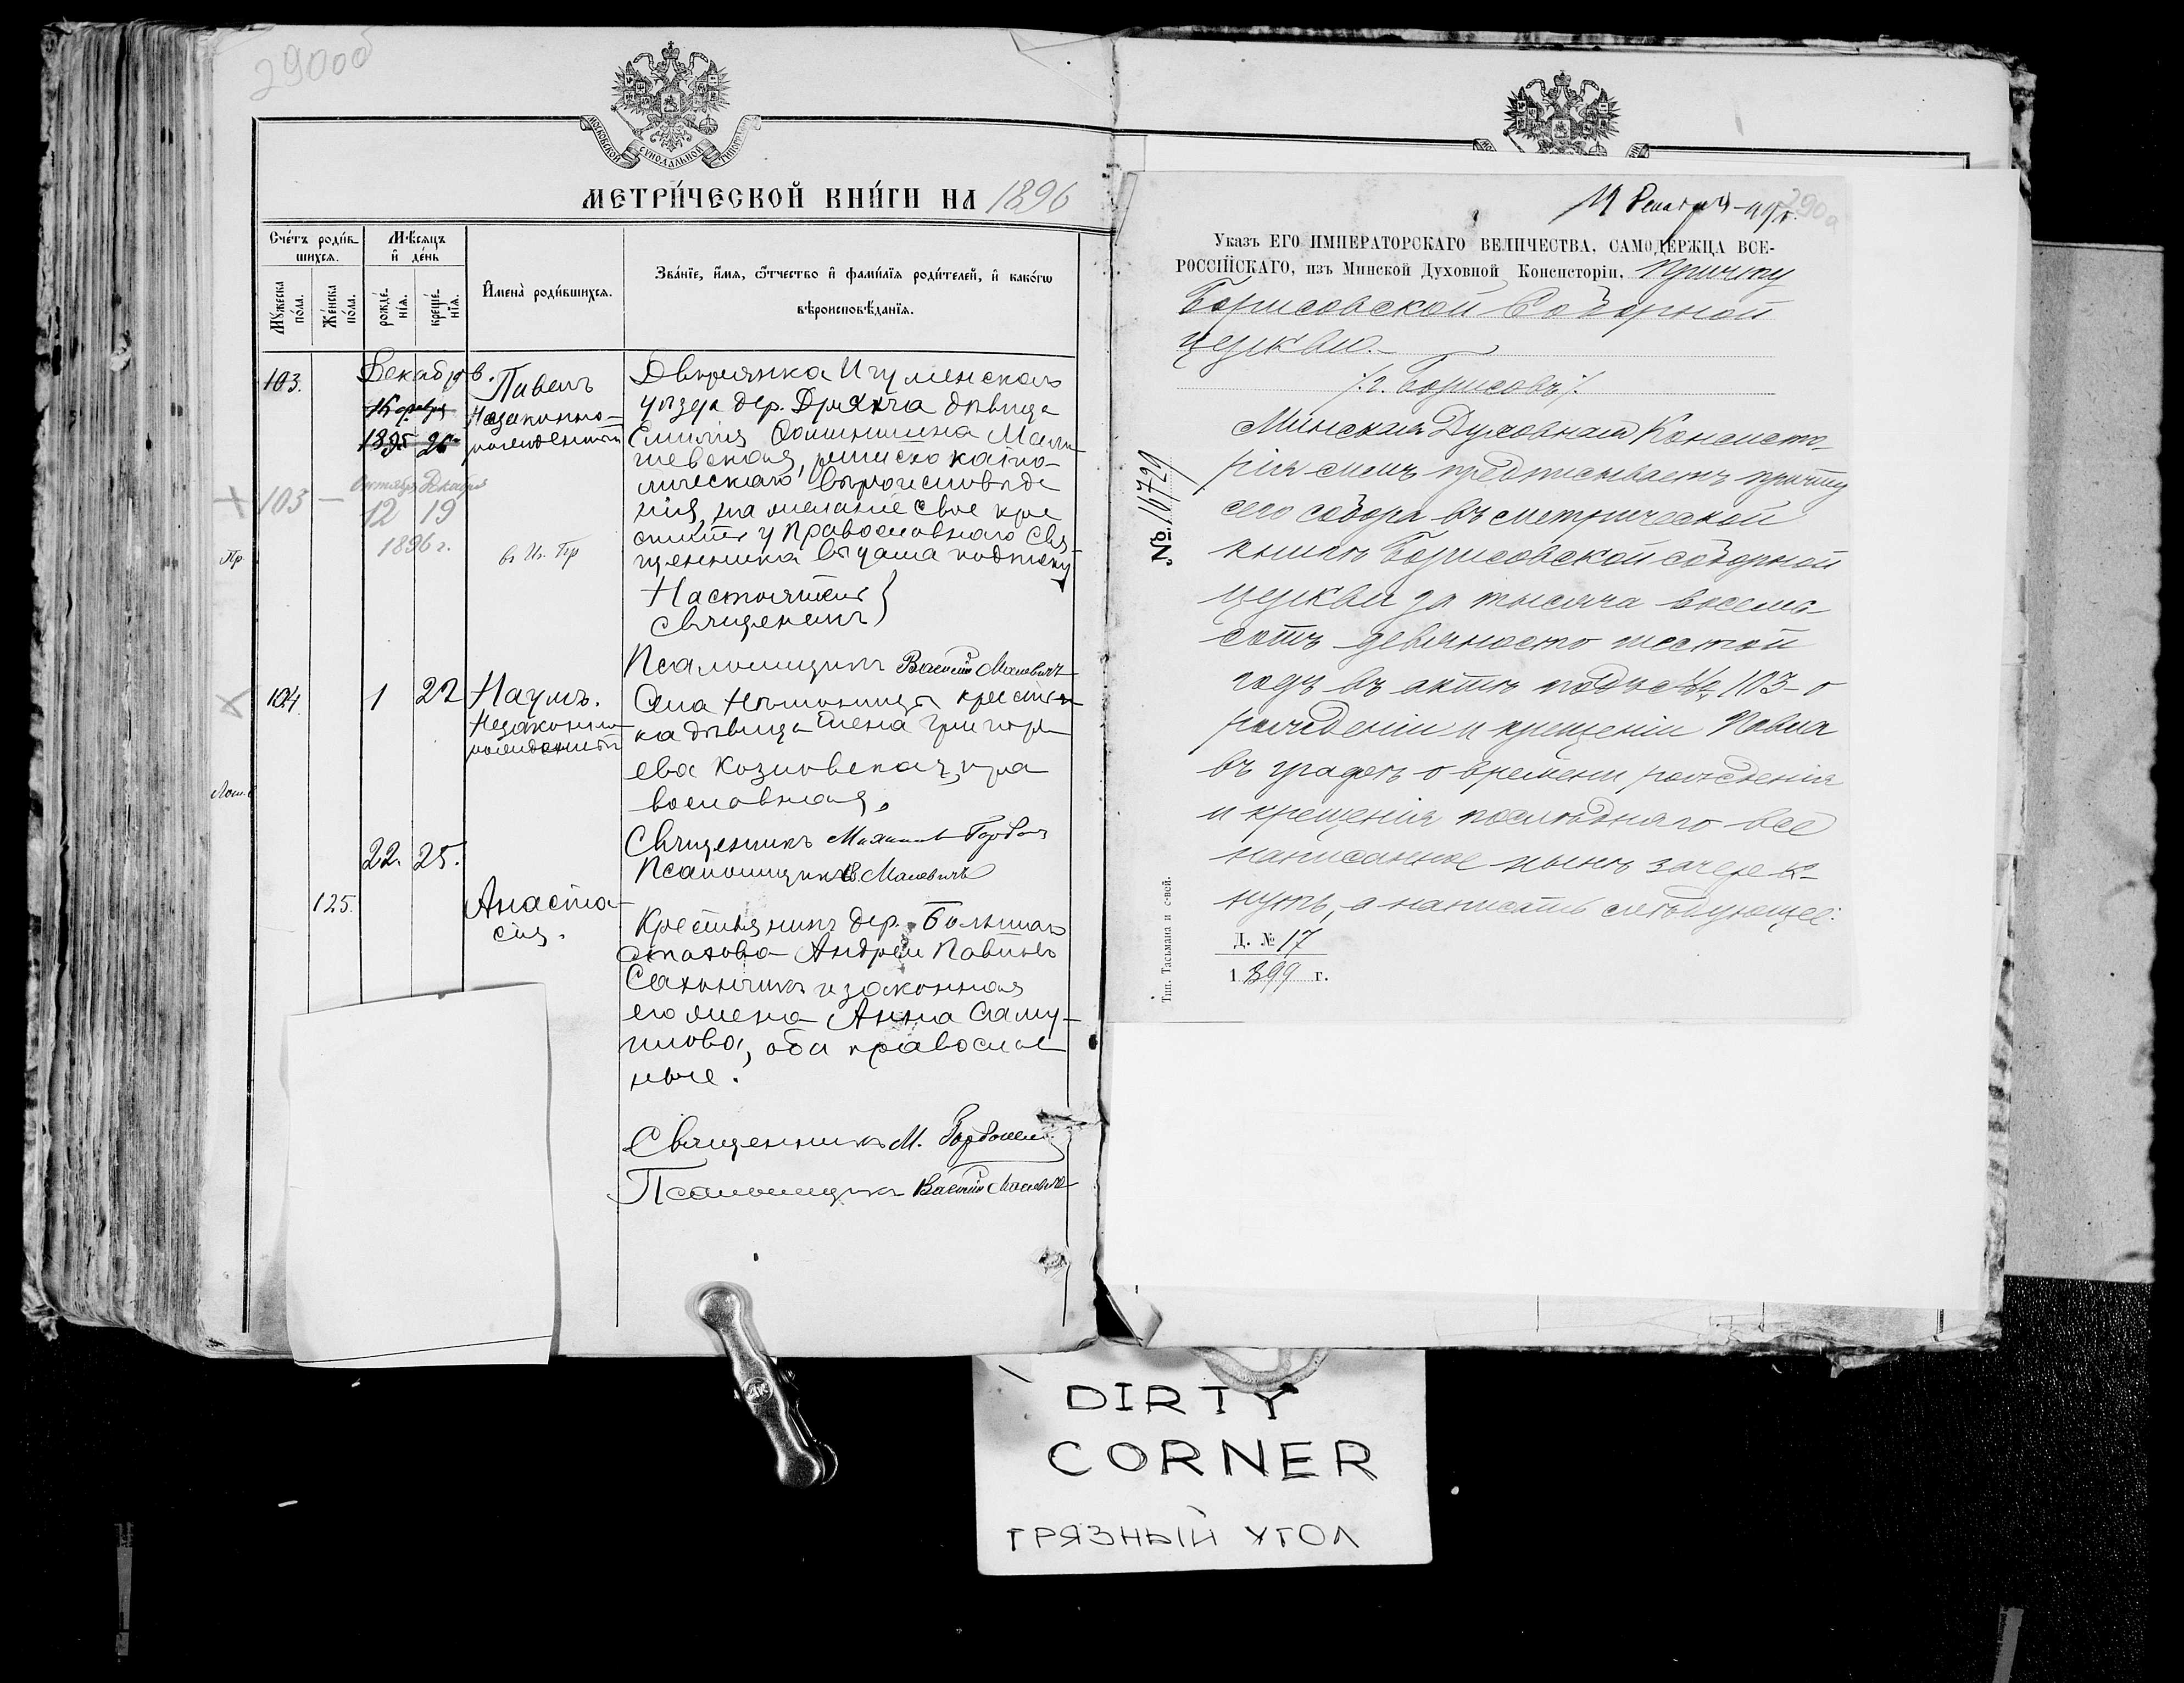 290об
МОСКОВСКОЙ СѴНОДАЛЬНОЙ ТИПОГР.
МЕТРИ́ЧЕСКОЙ КНИ́ГИ НА 1896
Сче́тъ роди́в-
шихсѧ.
Мꙋ́жеска по́ла.
Же́нска по́ла.
Мѣ́сѧцъ и҆ де́нь
рожде́-нїѧ.
креще́-нїѧ.
И҆мена̀ роди́вшихсѧ.
Зва́нїе, и҆́мѧ, ѻ҆́тчество и҆ фами́лїѧ роди́телей, и҆ како́гѡ
вѣроисповѣ́данїѧ.
103.
Декабрь
1895 26
Октябрь Декабря
103 12 19
1896 г.
Пр.
Павелъ
Незаконно-
рожденный
в И. Пр
Дворянка Игуменскаго
уѣзда дер. девица
Емилія
шевская, римско като-
лическаго вѣроисповѣда
нія, на желаніе свое кре
стить у Православнаго Свя
щенника выдала подписку
Настоятель
Священникъ
Псаломщикъ Василій Малевичъ
104. 1 22 Наумъ.
Незаконно
рожденный
крестьян
ка дѣвица Елена Григорь
ева Козловская, пра
вославная.
Священникъ Михаилъ
Псаломщикъ В Малевичъ
125. 22. 25. Анаста-
сія.
Крестьянинъ дер. Большаго
Стахова Андрей Павловъ
и законная
его жена Анна Саму-
илова, оба православ
ные.
Священникъ М.
Псаломщикъ Василій Малевичъ
290а
Указъ ЕГО ИМПЕРАТОРСКАГО ВЕЛИЧЕСТВА, САМОДЕРЖЦА ВСЕ-
РОССІЙСКАГО, изъ Минской Духовной Консисторіи, Причту
Борисовской Соборной
церкви.
г. Борисовъ
Минская Духовная Консисто-
рія симъ предписываетъ причту
сего собора въ метрической
книгѣ Борисовской соборной
церкви за тысяча восемь-
сотъ девяносто шестой
годъ въ актѣ подъ № 103 о
рожденіи и крещеніи Павла
въ графѣ о времени рожденія
и крещенія послѣдняго все
написанное нынѣ зачерк-
нуть, а написать слѣдующее:
Д. № 17
1899 г.
№ 16729
Тип. Тасьмана и с-вей.
DIRTY
CORNER
ГРЯЗНЫЙ УГОЛ